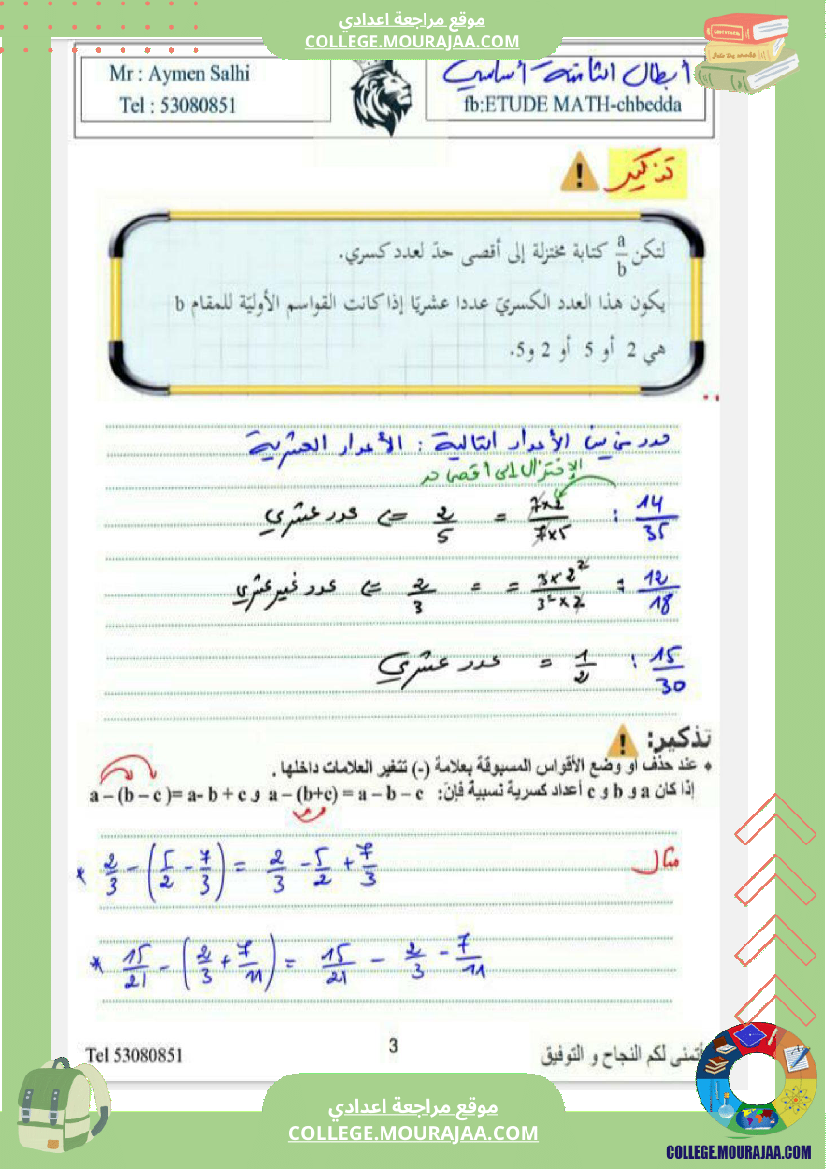 موقع مراجعة اعدادي
COLLEGE.MOURAJAA.COM
Mr : Aymen Salhi
Tel : 53080851
أبطال الثامنة أساسي
fb:ETUDE MATH-chbedda
تذكير
لتكن a/b كتابة مختزلة إلى أقصى حدّ لعدد كسري.
يكون هذا العدد الكسريّ عددا عشريّا إذا كانت القواسم الأوليّة للمقام b
هي 2 أو 5 أو 2 و5.
حدد من بين الأعداد التالية : الأعداد العشرية
الإختزال إلى أقصى حد
14/35 : 7×2/7×5 = 2/5 => عدد عشري
12/18 : 3×2²/3²×2 = = 2/3 => عدد غير عشري
15/30 : 1/2 = عدد عشري
تذكير:
* عند حذف أو وضع الأقواس المسبوقة بعلامة (-) تتغير العلامات داخلها .
إذا كان a و b و c أعداد كسرية نسبية فإنّ: a – (b+c) = a – b – c و a – (b – c )= a- b + c
مثال
* 2/3 - (5/2 - 7/3) = 2/3 - 5/2 + 7/3
* 15/21 - (2/3 + 7/11) = 15/21 - 2/3 - 7/11
Tel 53080851
3
أتمنى لكم النجاح و التوفيق
موقع مراجعة اعدادي
COLLEGE.MOURAJAA.COM
COLLEGE.MOURAJAA.COM